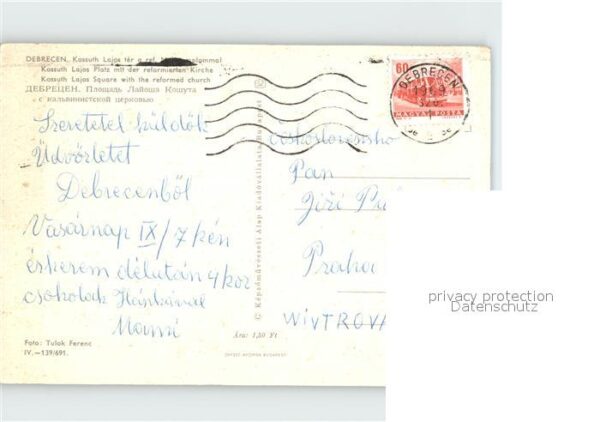 DEBRECEN, Kossuth Lajos tér a ref.
Kossuth Lajos Platz mit der reformierten Kirche
Kossuth Lajos Square with the reformed church
ДЕБРЕЦЕН. Площадь Лайоша Кошута
с кальвинистской церковью
Szeretetel küldök
Üdvözletet
Debrecenből
Vasárnap IX/7 kén
érkerem délután 4 kor
csokolak
Mami
Foto: Tulok Ferenc
IV.—139/691.
© Képzőművészeti Alap Kiadóvállalata Budapest
Ára: 1,50 Ft
60
MAGYAR POSTA
DEBRECEN
Pan
Jiří
Praha
WIVTROVA
privacy protection
Datenschutz